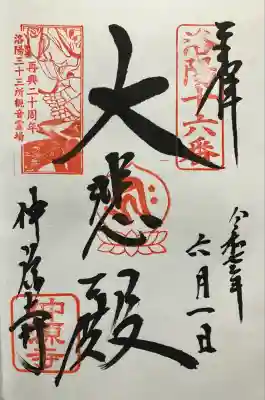 奉拝
洛陽十六番
令和七年
六月一日
大悲殿
再興二十周年
洛陽三十三所観音霊場
仲源寺
仲源寺